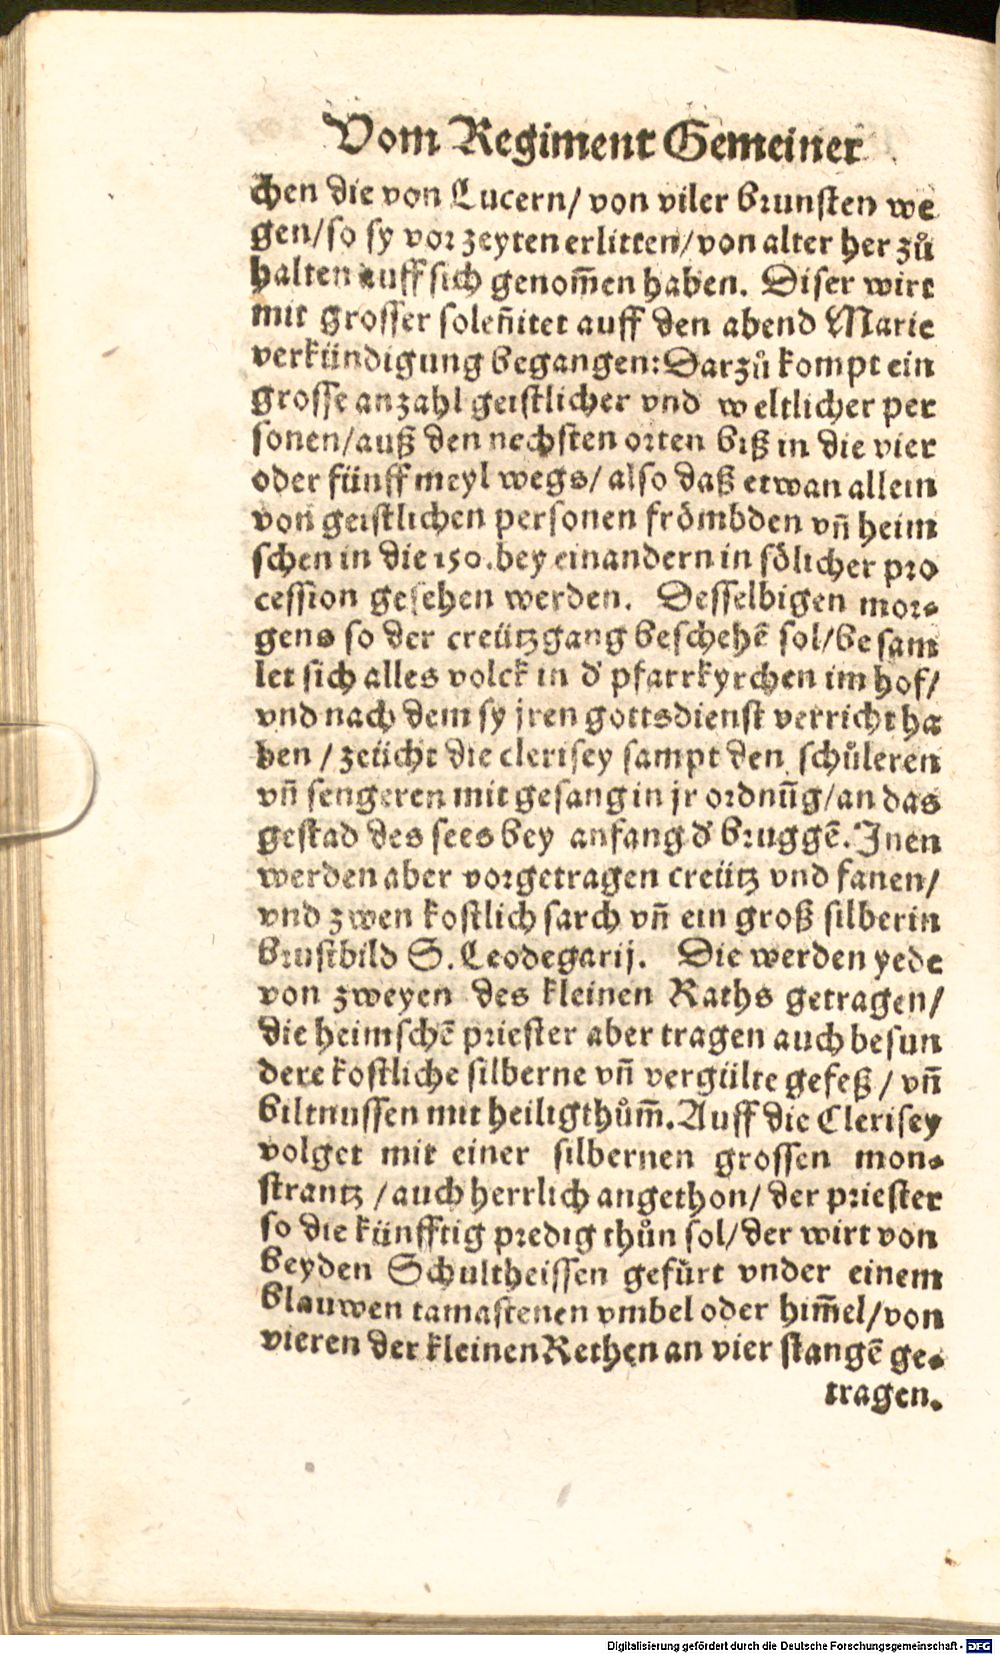 Vom Regiment Gemeiner
chen die von Lucern/ von viler brunsten we
gen/so sy vor zeyten erlitten/von alter her zů
halten auff sich genom̃en haben. Diser wirt
mit grosser soleñitet auff den abend Marie
verkündigung begangen: Darzů kompt ein
grosse anzahl geistlicher vnd weltlicher per
sonen/auß den nechsten orten biß in die vier
oder fünff meyl wegs/ also daß etwan allein
von geistlichen personen frömbden vñ heim
schen in die 150. bey einandern in sölicher pro
cession gesehen werden. Desselbigen mor⸗
gens so der creützgang beschehē sol/be sam
let sich alles volck in d' pfarrkyrchen im hof/
vnd nach dem sy jren gottsdienst verricht ha
ben / zeücht die clerisey sampt den schůleren
vñ sengeren mit gesang in jr ordnūg/an das
gestad des sees bey anfang d' bruggē. Inen
werden aber vorgetragen creütz vnd fanen/
vnd zwen kostlich sarch vñ ein groß silberin
brustbild S. Leodegarij. Die werden yede
von zweyen des kleinen Raths getragen/
die heimschē priester aber tragen auch besun
dere kostliche silberne vñ vergülte gefeß / vñ
biltnussen mit heiligthům̃. Auff die Clerisey
volget mit einer silbernen grossen mon⸗
strantz /auch herrlich angethon/ der priester
so die künfftig predig thůn sol/ der wirt von
beyden Schultheissen gefůrt vnder einem
blauwen tamastenen vmbel oder him̃el/von
vieren der kleinen Rethen an vier stangē ge⸗
tragen.
Digitalisierung gefördert durch die Deutsche Forschungsgemeinschaft - DFG